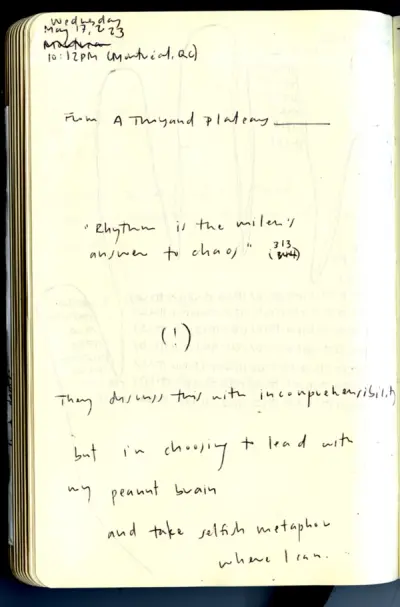 Wednesday
May 17, 2023
10:12pm (Montreal, QC)
From A Thousand Plateaus ______
"Rhythm is the milieu's
answer to chaos" (313)
(!)
They discuss this with incomprehensibility
but in choosing to lead with
my peanut brain
and take selfish metaphor
where I can.